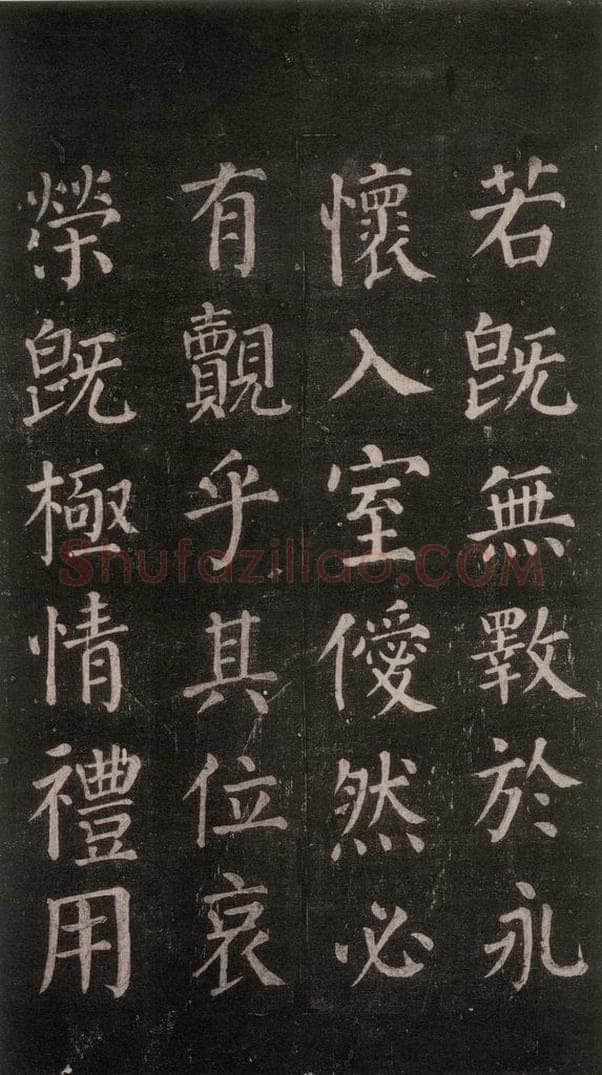 若旣無斁於永
懷入室僾然必
有覿乎其位哀
榮旣極情禮用
Shufaziliao.COM